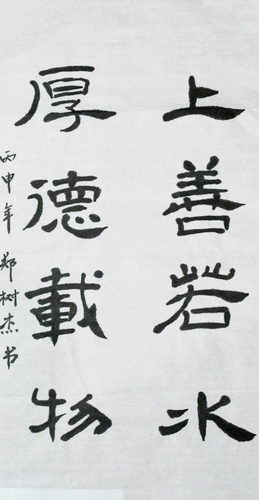 上善若水
厚德載物
丙申年 郑树杰书